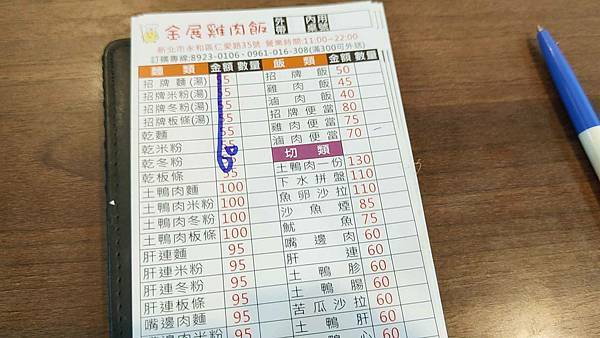 全展雞肉飯 外帶 內用
新北市永和區仁愛路35號 營業時間:11:00~22:00
訂購專線:8923-0106、0961-016-308(滿300可外送)
麵類 金額 數量 飯類 金額 數量
招牌麵(湯) 招牌飯 50
招牌米粉(湯) 雞肉飯 45
招牌冬粉(湯) 滷肉飯 40
招牌板條(湯) 招牌便當 80
乾麵 雞肉便當 75
乾米粉 滷肉便當 70
乾冬粉 切類
乾板條 55 土鴨肉一份 130
土鴨肉麵 100 下水拼盤 110
土鴨肉米粉 100 魚卵沙拉 110
土鴨肉冬粉 100 沙魚煙 85
土鴨肉板條 100 魷魚 75
肝連麵 95 嘴邊肉 60
肝連米粉 95 肝連 60
肝連冬粉 95 土鴨胗 60
肝連板條 95 土鴨腸 60
嘴邊肉麵 95 苦瓜沙拉 60
嘴邊肉米粉 95 土鴨肝 60
土鴨心 60